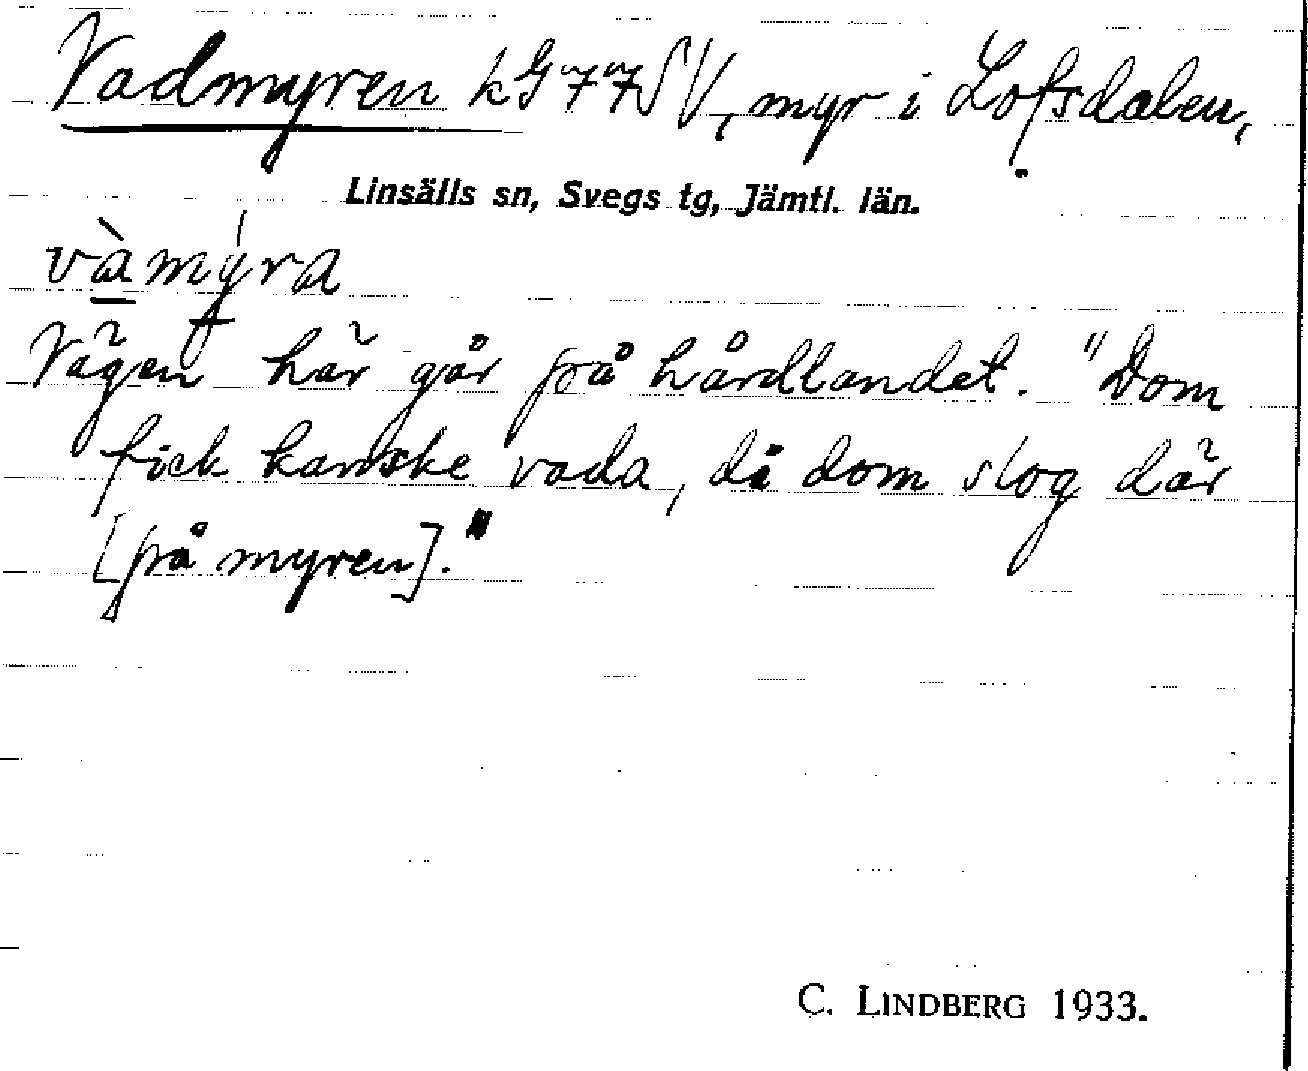 Vadmyren kG77SV, myr i Lofsdalen,
Linsälls sn, Svegs tg, Jämtl. län.
vàmýra
Vägen här går på hårdlandet. "Dom
fick kanske vada, då dom slog där
[på myren]."
C. LINDBERG 1933.